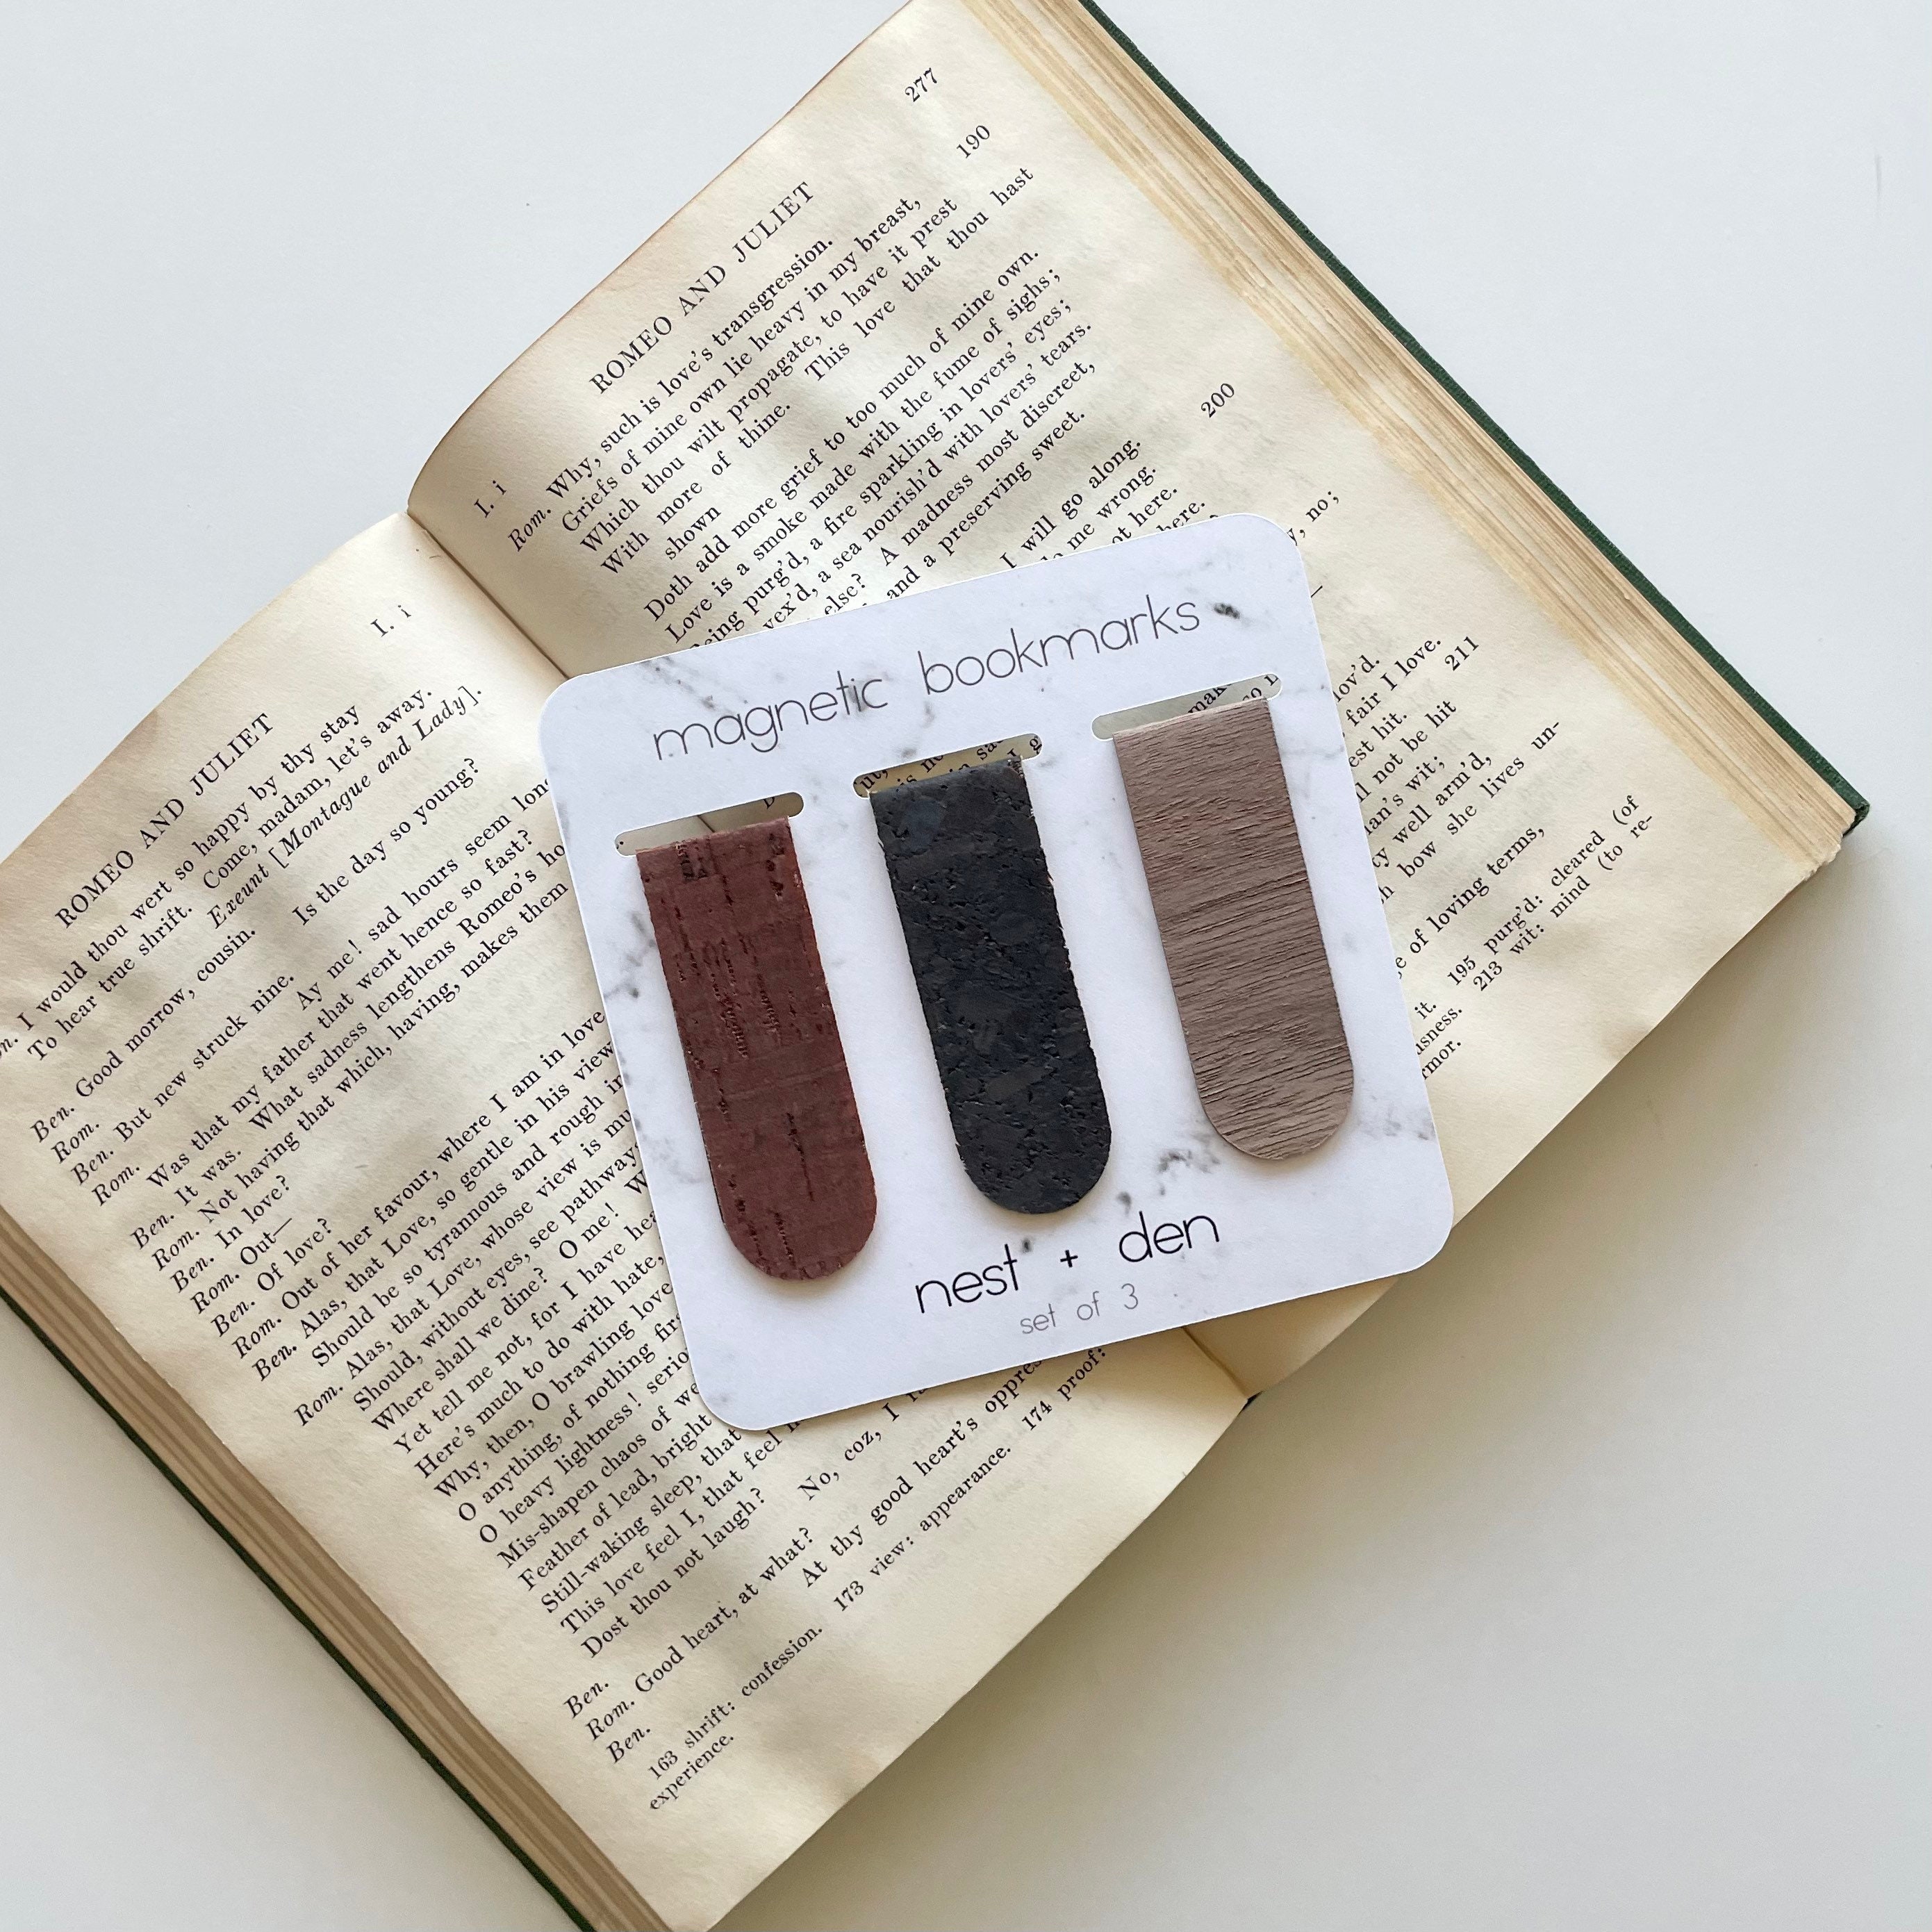 I. i
ROMEO AND JULIET
I would thou wert so happy by thy stay
To hear true shrift. Come, madam, let's away.
Exeunt [Montague and Lady].
Ben. Good morrow, cousin.
Rom. Is the day so young?
Ben. But new struck nine.
Rom. Ay me! sad hours seem
Was that my father that went hence so fast?
Ben. It was. What sadness lengthens Romeo's
Rom. Not having that which, having, makes them
Ben. In love?
Rom. Out—
Ben. Of love?
Rom. Out of her favour, where I am in love
Ben. Alas, that Love, so gentle in his view
Should be so tyrannous and rough in
Rom. Alas, that Love, whose view is
Should, without eyes, see pathway
Where shall we dine? O me!
Yet tell me not, for I have
Here's much to do with hate,
Why, then, O brawling love
O anything, of nothing
O heavy lightness!
Mis-shapen chaos of
Feather of lead, bright
Still-waking sleep, that
This love feel I, that feel
Dost thou not laugh?
Ben. No, coz, I
Rom. Good heart, at what?
Ben. At thy good heart's
163 shrift: confession. 173 view: appearance. 174 proof:
experience.
277
I. i
ROMEO AND JULIET
190
Rom. Why, such is love's transgression.
Griefs of mine own lie heavy in my breast,
Which thou wilt propagate, to have it prest
With more of thine. This love that thou hast
shown
Doth add more grief to too much of mine own.
Love is a smoke made with the fume of sighs;
purg'd, a fire sparkling in lovers' eyes;
vex'd, a sea nourish'd with lovers' tears.
else? A madness most discreet,
and a preserving sweet.
200
I will go along.
me wrong.
not here.
here.
no;
lov'd.
fair I love.
211
hit.
not be hit
wit;
well arm'd,
she lives un-
of loving terms,
it. 195 purg'd: cleared (of
213 wit: mind (to re-
magnetic bookmarks
nest + den
set of 3